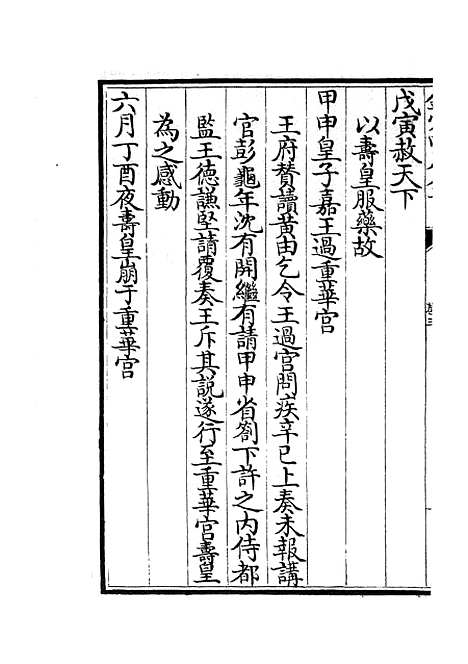 戊寅赦天下
以壽皇服藥故
甲申皇子嘉王過重華宫
王府賛讀黄由乞令王過宫問疾辛巳上奏未報講
官彭龜年沈有開繼有請甲申省劄下許之内侍都
監王德謙堅請覆奏王斥其説遂行至重華宫壽皇
為之感動
六月丁酉夜壽皇崩于重華宫